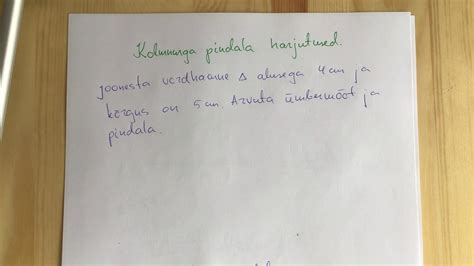 Kolmnurga pindala harjutused.
Joonesta võrdhaarne Δ alusega 4cm ja
kõrgus on 5cm. Arvuta ümbermõõt ja
pindala.